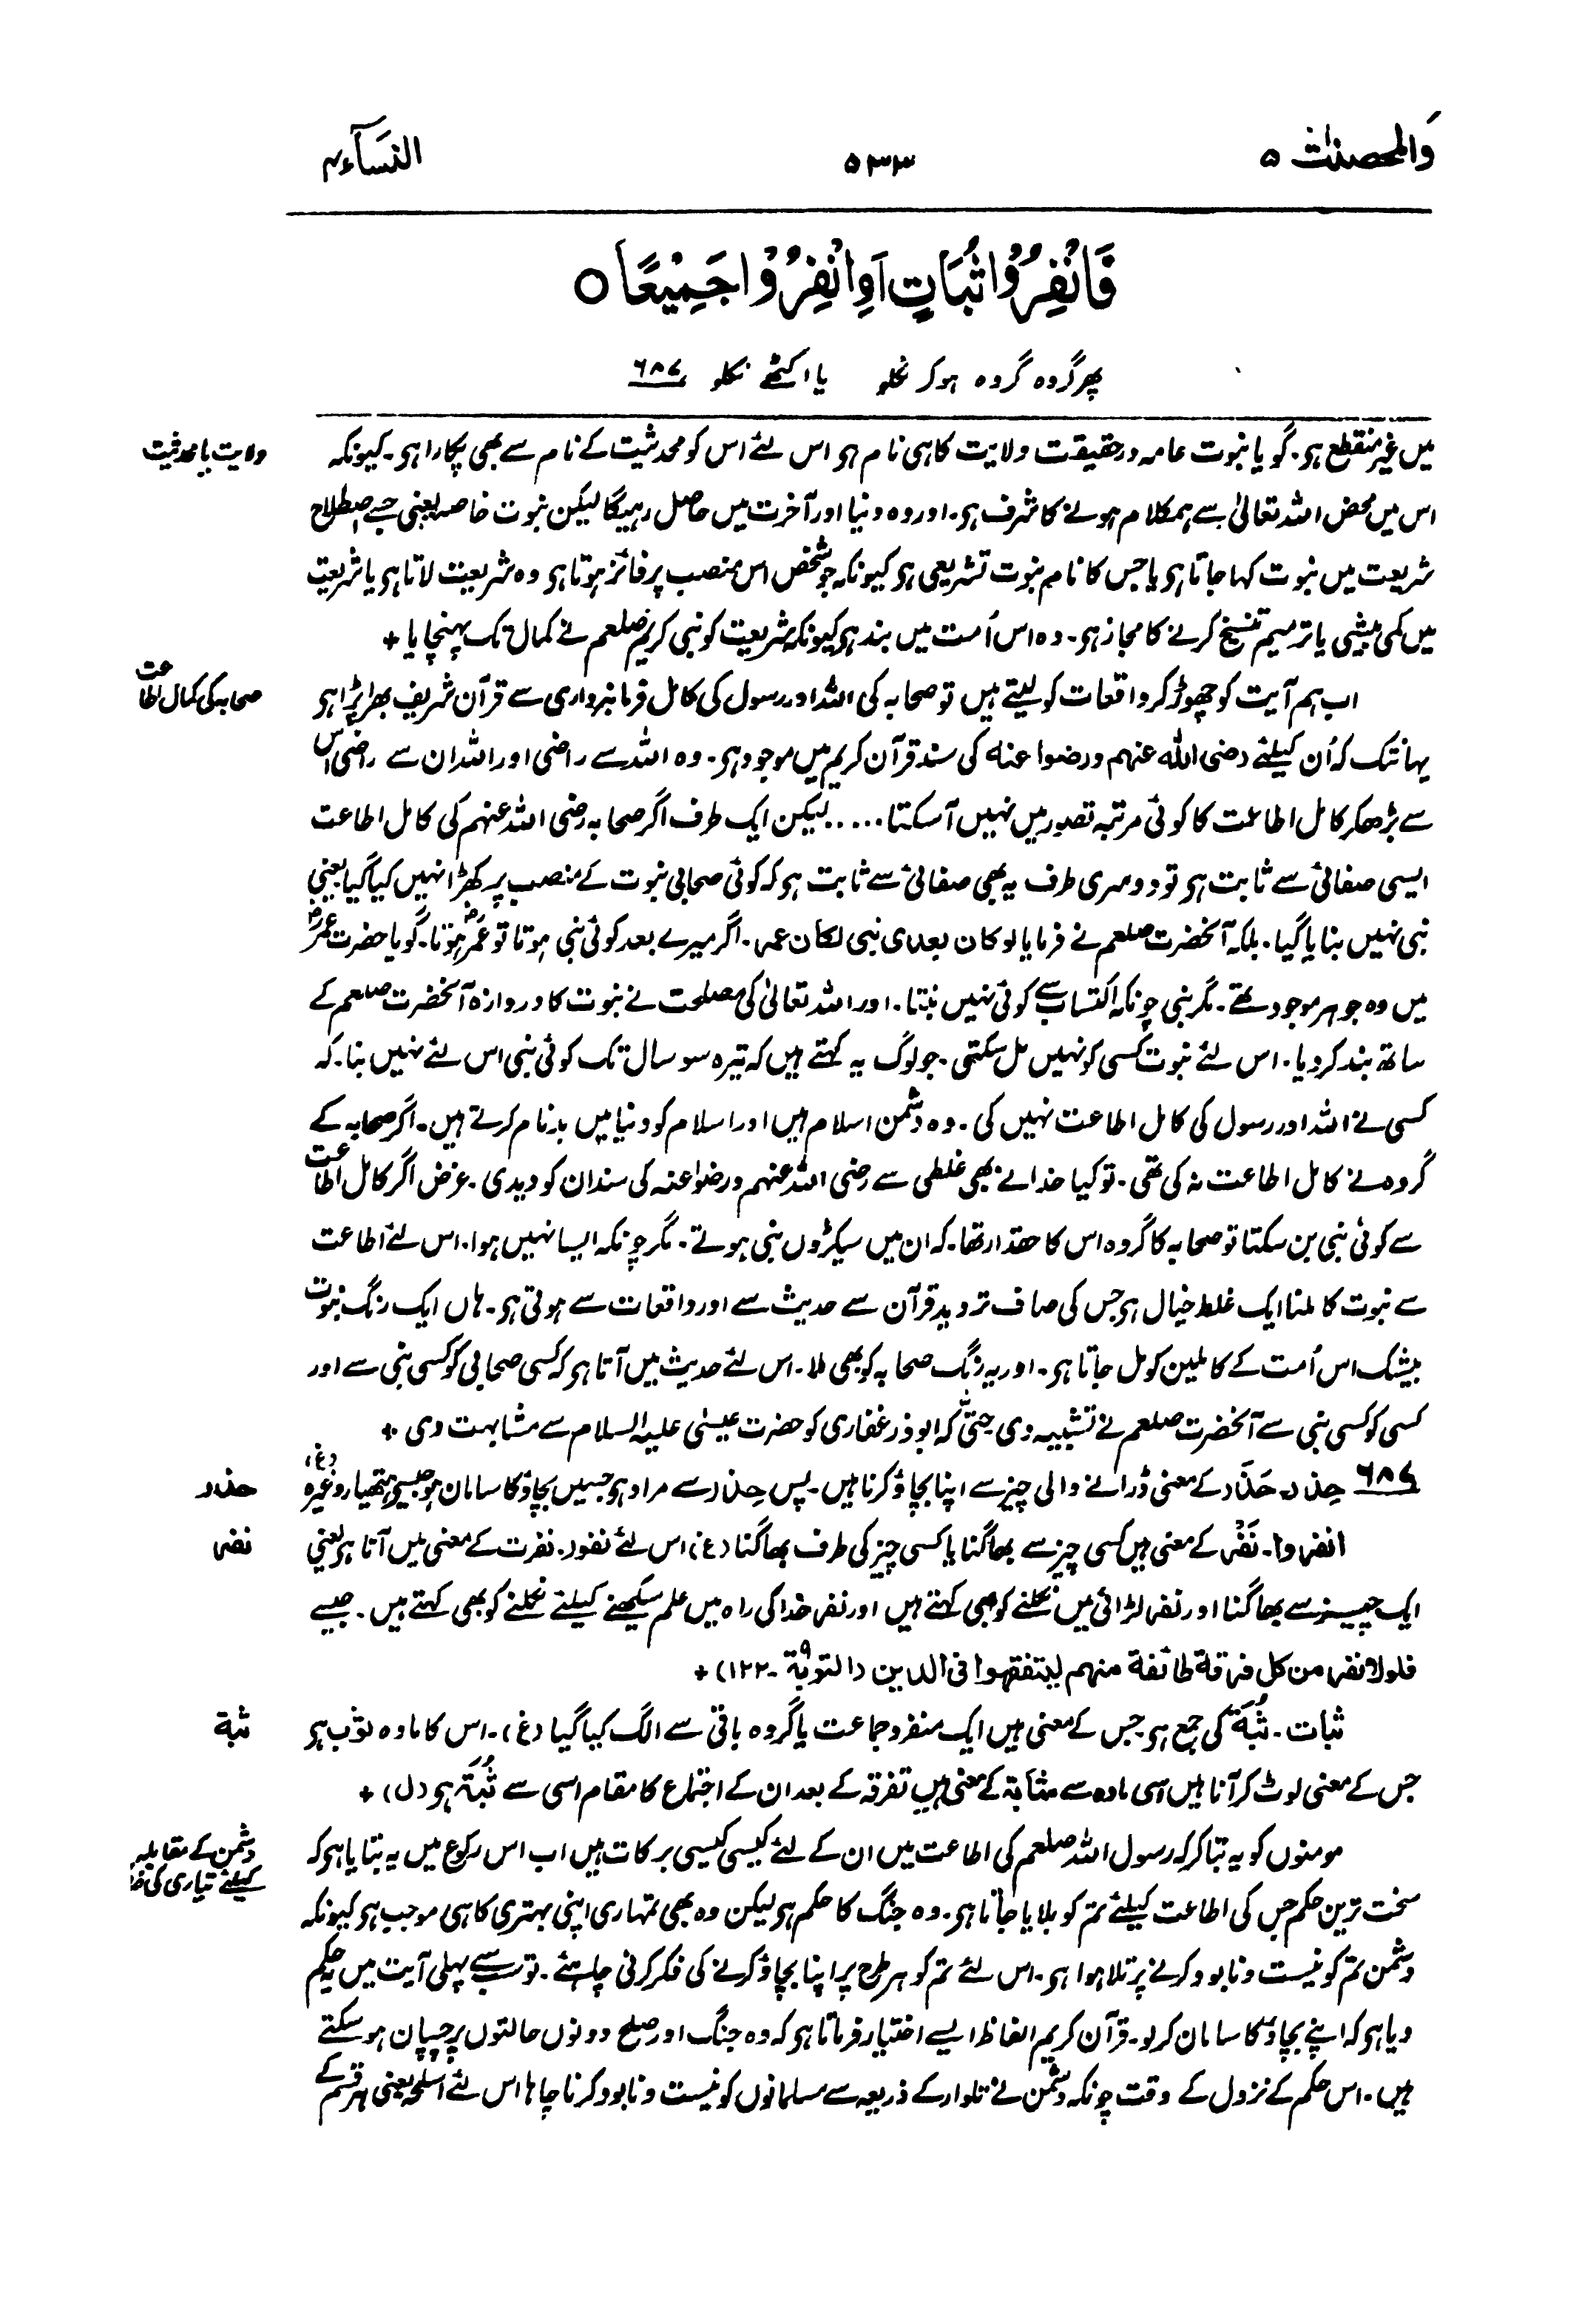 والمحصنات ۵
۵۳۳
النسآء ۴
فَانْفِرُوْا ثُبَاتٍ اَوِ انْفِرُوْا جَمِيْعًا ○
پھر گروہ گروہ ہو کر نکلو یا اکٹھے نکلو ۶۸۷
میں غیر منقطع ہو۔ گویا نبوت عامہ درحقیقت ولایت کا ہی نام ہو اس لئے اس کو محدثیت کے نام سے بھی پکارا ہو۔ کیونکہ
ولایت یا محدثیت
اس میں محض اللہ تعالیٰ سے ہمکلام ہونے کا شرف ہو۔ اور وہ دنیا اور آخرت میں حاصل رہیگا لیکن نبوت خاصہ یعنی جسے اصطلاح
شریعت میں نبوت کہا جاتا ہو یا جس کا نام نبوت تشریعی ہو کیونکہ جو شخص اس منصب پر فائز ہوتا ہو وہ شریعت لاتا ہو یا شریعت
میں کمی بیشی یا ترمیم تنسیخ کرنے کا مجاز ہو۔ وہ اس اُمت میں بند ہو کیونکہ شریعت کو نبی کریم صلعم نے کمال تک پہنچایا +
اب ہم آیت کو چھوڑ کر واقعات کو لیتے ہیں تو صحابہ کی اللہ اور رسول کی کامل فرمانبرداری سے قرآن شریف بھرا پڑا ہو
صحابہ کی کمال اطاعت
یہانتک کہ اُن کیلئے رضی اللہ عنہم ورضوا عنہ کی سند قرآن کریم میں موجود ہو۔ وہ اللہ سے راضی اور اللہ ان سے راضی اس
سے بڑھکر کامل اطاعت کا کوئی مرتبہ تصور میں نہیں آسکتا.....لیکن ایک طرف اگر صحابہ رضی اللہ عنہم کی کامل اطاعت
ایسی صفائی سے ثابت ہو تو دوسری طرف یہ بھی صفائی سے ثابت ہو کہ کوئی صحابی نبوت کے منصب پر کھڑا نہیں کیا گیا یعنی
نبی نہیں بنایا گیا۔ بلکہ آنحضرت صلعم نے فرمایا لو کان بعدی نبی لکان عمر۔ اگر میرے بعد کوئی نبی ہوتا تو عمرؓ ہوتا۔ گویا حضرت عمرؓ
میں وہ جوہر موجود تھے۔ مگر نبی چونکہ اکتساب سے کوئی نہیں بنتا۔ اور اللہ تعالیٰ کی مصلحت نے نبوت کا دروازہ آنحضرت صلعم کے
ساتھ بند کر دیا۔ اس لئے نبوت کسی کو نہیں مل سکتی۔ جو لوگ یہ کہتے ہیں کہ تیرہ سو سال تک کوئی نبی اس لئے نہیں بنا۔ کہ
کسی نے اللہ اور رسول کی کامل اطاعت نہیں کی۔ وہ دشمن اسلام ہیں اور اسلام کو دنیا میں بدنام کرتے ہیں۔ اگر صحابہ کے
گروہ نے کامل اطاعت نہ کی تھی۔ تو کیا خدا نے بھی غلطی سے رضی اللہ عنہم ورضوا عنہ کی سند ان کو دیدی۔ غرض اگر کامل اطاعت
سے کوئی نبی بن سکتا تو صحابہ کا گروہ اس کا حقدار تھا۔ کہ ان میں سیکڑوں نبی ہوتے۔ مگر چونکہ ایسا نہیں ہوا۔ اس لئے اطاعت
سے نبوت کا ملنا ایک غلط خیال ہو جس کی صاف تردید قرآن سے حدیث سے اور واقعات سے ہوتی ہو۔ ہاں ایک رنگ نبوت
بیشک اس اُمت کے کاملین کو مل جاتا ہو۔ اور یہ رنگ صحابہ کو بھی ملا۔ اس لئے حدیث میں آتا ہو کہ کسی صحابی کو کسی نبی سے اور
کسی کو کسی نبی سے آنحضرت صلعم نے تشبیہ دی حتیٰ کہ ابوذر غفاری کو حضرت عیسیٰ علیہ السلام سے مشابہت دی +
۶۸۷ حِذر۔ حَذَر کے معنی ڈرانے والی چیز سے اپنا بچاؤ کرنا ہیں۔ پس حِذر سے مراد ہو جسمیں بچاؤ کا سامان ہو جیسے ہتھیار وغیرہ (غ)
حذر
انفروا۔ نَفْر کے معنی ہیں کسی چیز سے بھاگنا یا کسی چیز کی طرف بھاگنا (غ) اس لئے نفور۔ نفرت کے معنی میں آتا ہو یعنی
نفر
ایک چیز سے بھاگنا اور نفر لڑائی میں نکلنے کو بھی کہتے ہیں اور نفر خدا کی راہ میں علم سیکھنے کیلئے نکلنے کو بھی کہتے ہیں۔ جیسے
فلولا نفر من کل فرقة طائفة منہم لیتفقہوا فی الدین (التوبة ۹۔۱۲۲) +
ثبات۔ ثُبَة کی جمع ہو جس کے معنی ہیں ایک منفرد جماعت یا گروہ باقی سے الگ کیا گیا (غ)۔ اس کا مادہ ثوب ہو
ثبة
جس کے معنی لوٹ کر آنا ہیں اسی مادہ سے مثابة کے معنی ہیں تفرقہ کے بعد ان کے اجتماع کا مقام اسی سے ثُبَة ہو (ل) +
مومنوں کو یہ بتا کر کہ رسول اللہ صلعم کی اطاعت میں ان کے لئے کیسی کیسی برکات ہیں اب اس رکوع میں یہ بتایا ہو کہ
دشمن کے مقابلہ کیلئے تیاری کی
سخت ترین حکم جس کی اطاعت کیلئے تم کو بلایا جاتا ہو۔ وہ جنگ کا حکم ہو لیکن وہ بھی تمہاری اپنی بہتری کا ہی موجب ہو کیونکہ
دشمن تم کو نیست و نابود کرنے پر تلا ہوا ہو۔ اس لئے تم کو ہر طرح پر اپنا بچاؤ کرنے کی فکر کرنی چاہئے۔ تو سب سے پہلی آیت میں یہ حکم
دیا ہو کہ اپنے بچاؤ کا سامان کر لو۔ قرآن کریم الفاظ ایسے اختیار فرماتا ہو کہ وہ جنگ اور صلح دونوں حالتوں پر چسپان ہو سکتے
ہیں۔ اس حکم کے نزول کے وقت چونکہ دشمن نے تلوار کے ذریعہ سے مسلمانوں کو نیست و نابود کرنا چاہا اس لئے اسلحہ یعنی ہر قسم کے